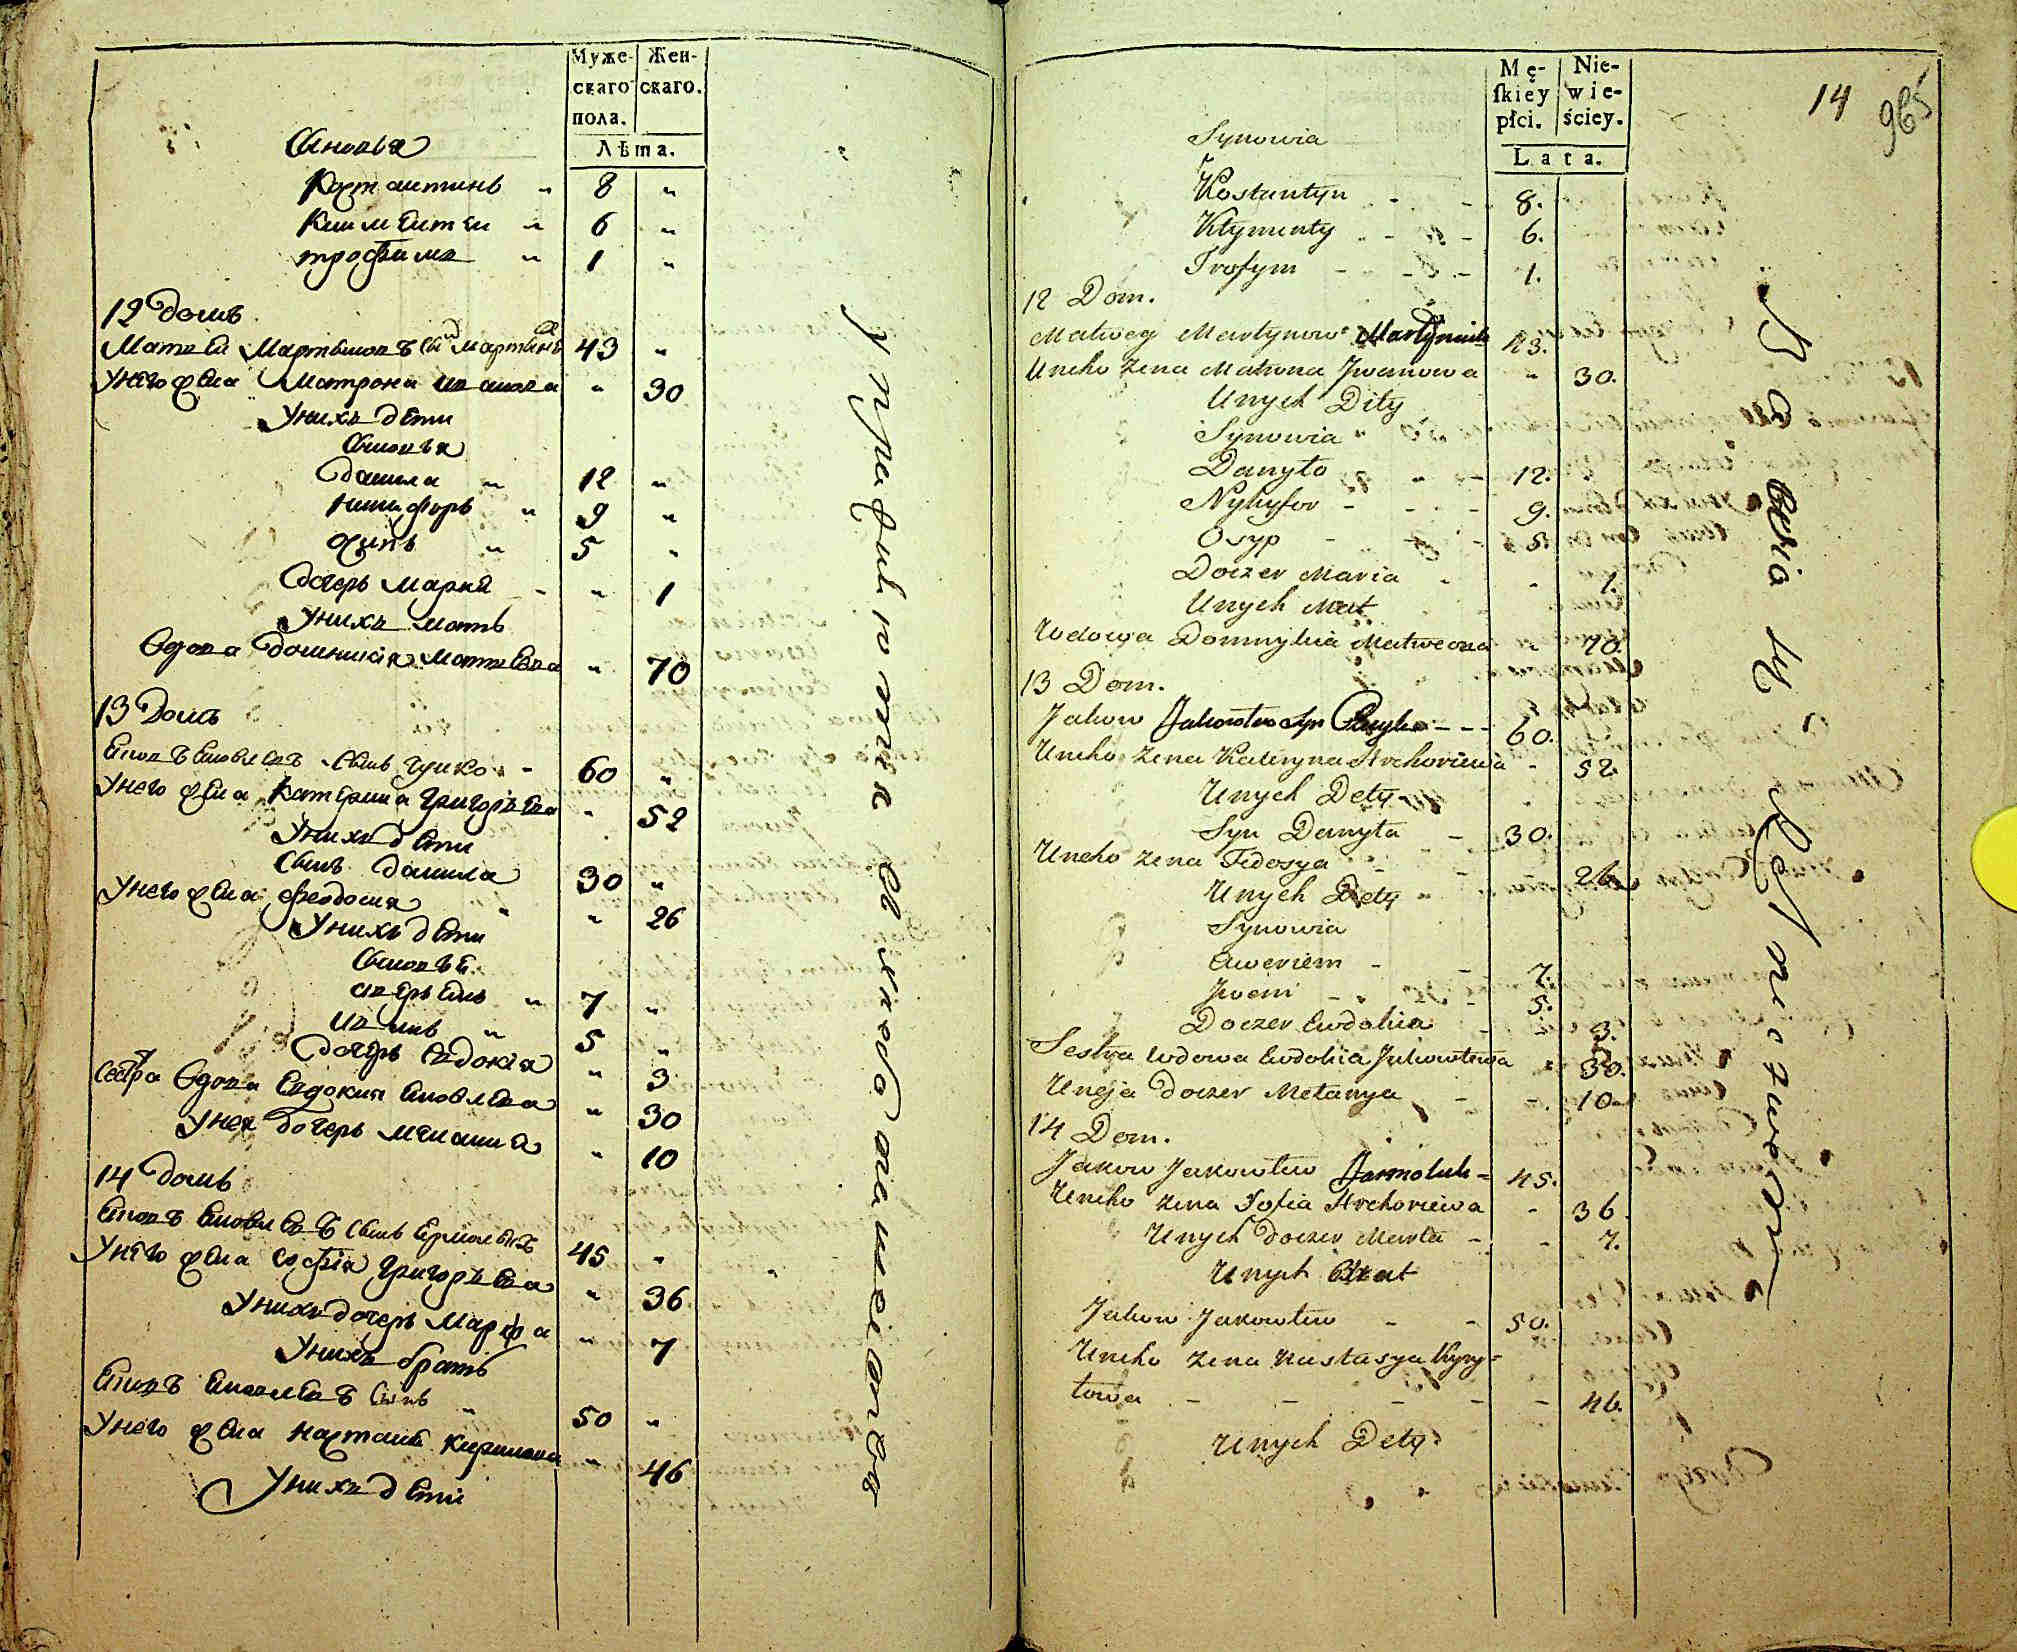 Муже- Жен-
скаго скаго.
пола.
Лѣта.
Синовья
Костантинъ „ 8 „
Климентей „ 6 „
трофимъ „ 1 „
12 домъ
Матвей Мартыновъ сынъ 43 „
Унего жена Матрона Иванова „ 30
Унихъ дети
Сыновья
Данила „ 12 „
Никифоръ „ 9 „
Осипъ „ 5 „
дочерь Мария „ „ 1
Унихъ мать
Вдова Домникия Матвеева „ 70
13 Домъ
Яковъ Яковлевъ сынъ 60 „
Унего жена Катерина Григорьева „ 52
Унихъ дети
Сынъ данила 30 „
Унего жена феодосия „ 26
Унихъ дети
Сыновье
аверьянъ „ 7 „
Иванъ „ 5 „
дочерь Евдокия „ 3
Сестра Вдова Евдокия Яковлева „ 30
Унея дочерь мелания „ 10
14 домъ
Яковъ Яковлевъ сынъ 45 „
Унего жена София Григорьева „ 36
Унихъ дочерь Марфа „ 7
Унихъ братъ
Яковъ Яковлевъ сынъ „ 50 „
Унего жена Настасия Кирилова „ 46
Унихъ дети
14
965
Mę- Nie-
ſkiey wie-
płci. ściey.
Lata.
Synowia
Kostantyn - - 8.
Kłymenty - - 6.
Trofym - - - 1.
12 Dom.
Matwey Martynow Martyniuk 43.
Uneho żena Matrona Jwanowa „ 30.
Unych Dity
Synowia
Danyło - 12.
Nykyfor - - - 9.
Osyp - - 5.
Doczer Maria - - 1.
Unych Mat
Wdowa Domnykia Matweowa „ 70.
13 Dom.
Jakow Jakowlew syn - - - 60.
Uneho żena Kateryna Hrehoriewa - 52.
Unych Dety
Syn Danyła - 30.
Uneho żena Fedosya - - 26.
Unych Dety
Synowia
Aweriem - - 7.
Jwan - - 5.
Doczer Ewdokia - - 3.
Sestra wdowa Ewdokia Jakowlewa 30.
Uneja doczer Mełanya - - 10.
14 Dom.
Jakow Jakowlew Jarmoluk 45.
Uneho żena Sofia Hrehoriewa - 36.
Unych doczer Marta - - 7.
Unych Brat
Jakow Jakowlew - - 50.
Uneho żena Nastasya Kyry-
łowa - - - - - 46.
Unych Dety